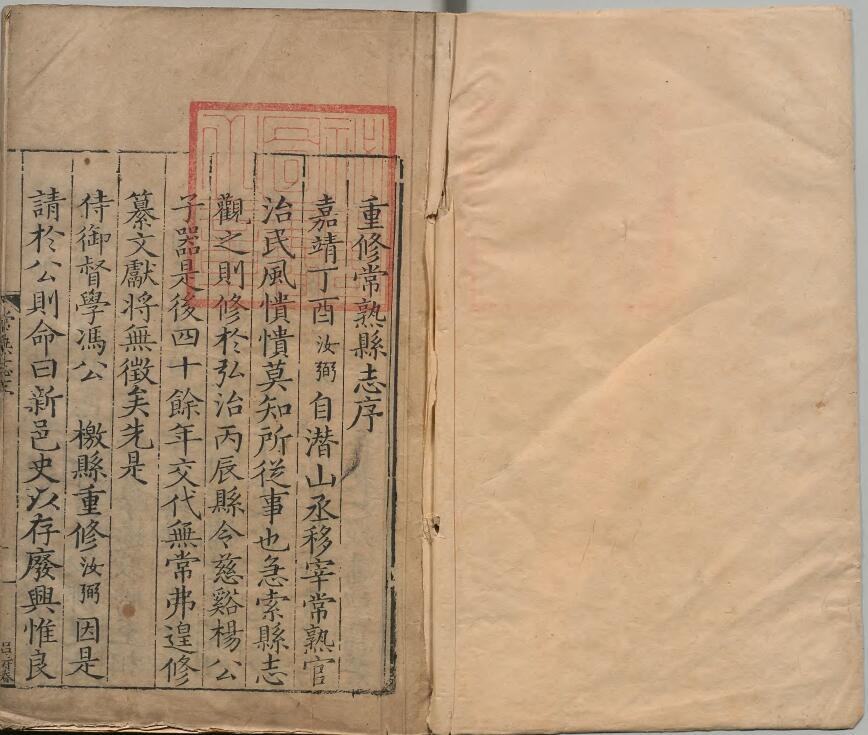 重修常熟縣志序
嘉靖丁酉汝弼自潛山丞移宰常熟官
治民風憒憒莫知所從事也急索縣志
觀之則修於弘治丙辰縣令慈谿楊公
子器是後四十餘年交代無常弗遑修
纂文獻將無徵矣先是
侍御督學馮公 檄縣重修汝弼因是
請於公則命曰新邑史以存廢興惟良